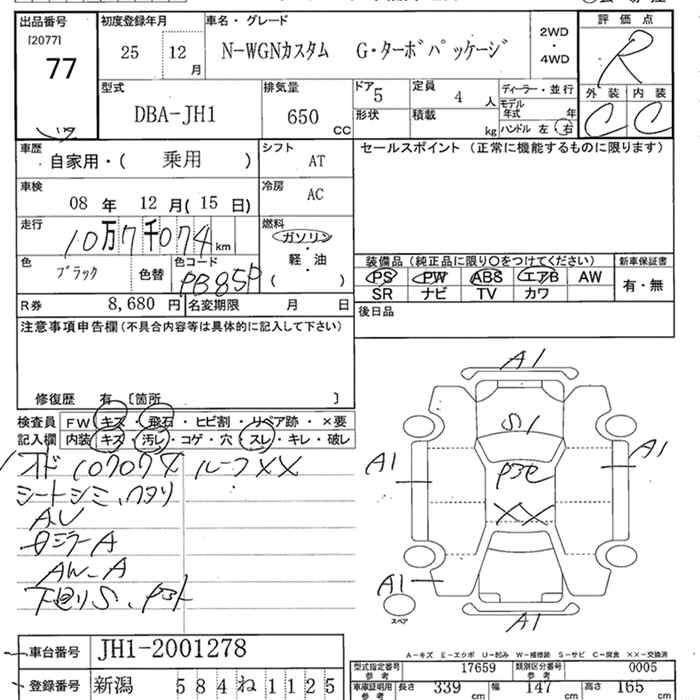 出品番号 初度登録年月 車名・グレード 評価点
[2077]
77
25 12月 N-WGNカスタム G・ターボパッケージ 2WD・4WD R
外装 内装
C C
型式 排気量 ドア 定員 ディーラー・並行
DBA-JH1 650 CC 5 4 人 モデル年式 年
形状 積載 kg ハンドル 左 右
車歴 シフト セールスポイント(正常に機能するものに限ります)
自家用・( 乗用 ) AT
車検 冷房
08 年 12 月( 15 日) AC
走行 燃料
10万7千074 km ガソリン・軽・油 ( )
装備品(純正品に限り○をつけてください) 新車保証書
色 色コード PS PW ABS エアB AW 有・無
ブラック 色替 PB85P SR ナビ TV カワ
R券 8,680 円 名変期限 月 日 後日品
注意事項申告欄(不具合内容等は具体的に記入して下さい)
修復歴 有 [箇所 ]
検査員 FW キズ・飛石・ヒビ割・リペア跡・×要
記入欄 内装 キズ・汚レ・コゲ・穴・スレ・キレ・破レ
107074 ルーフXX
シートシミ、
AW-A
下廻りS、
A1
S1
A1 A1
XX
A1
スペア
A1
A-キズ E-エクボ U-凹み W-補修跡 S-サビ C-腐食 XX-交換済
車台番号 JH1-2001278
型式指定番号 参考 17659 類別区分番号 参考 0005
登録番号 新潟 584ね1125
車庫証明用 参考 長さ 339 cm 幅 147 cm 高さ 165 cm